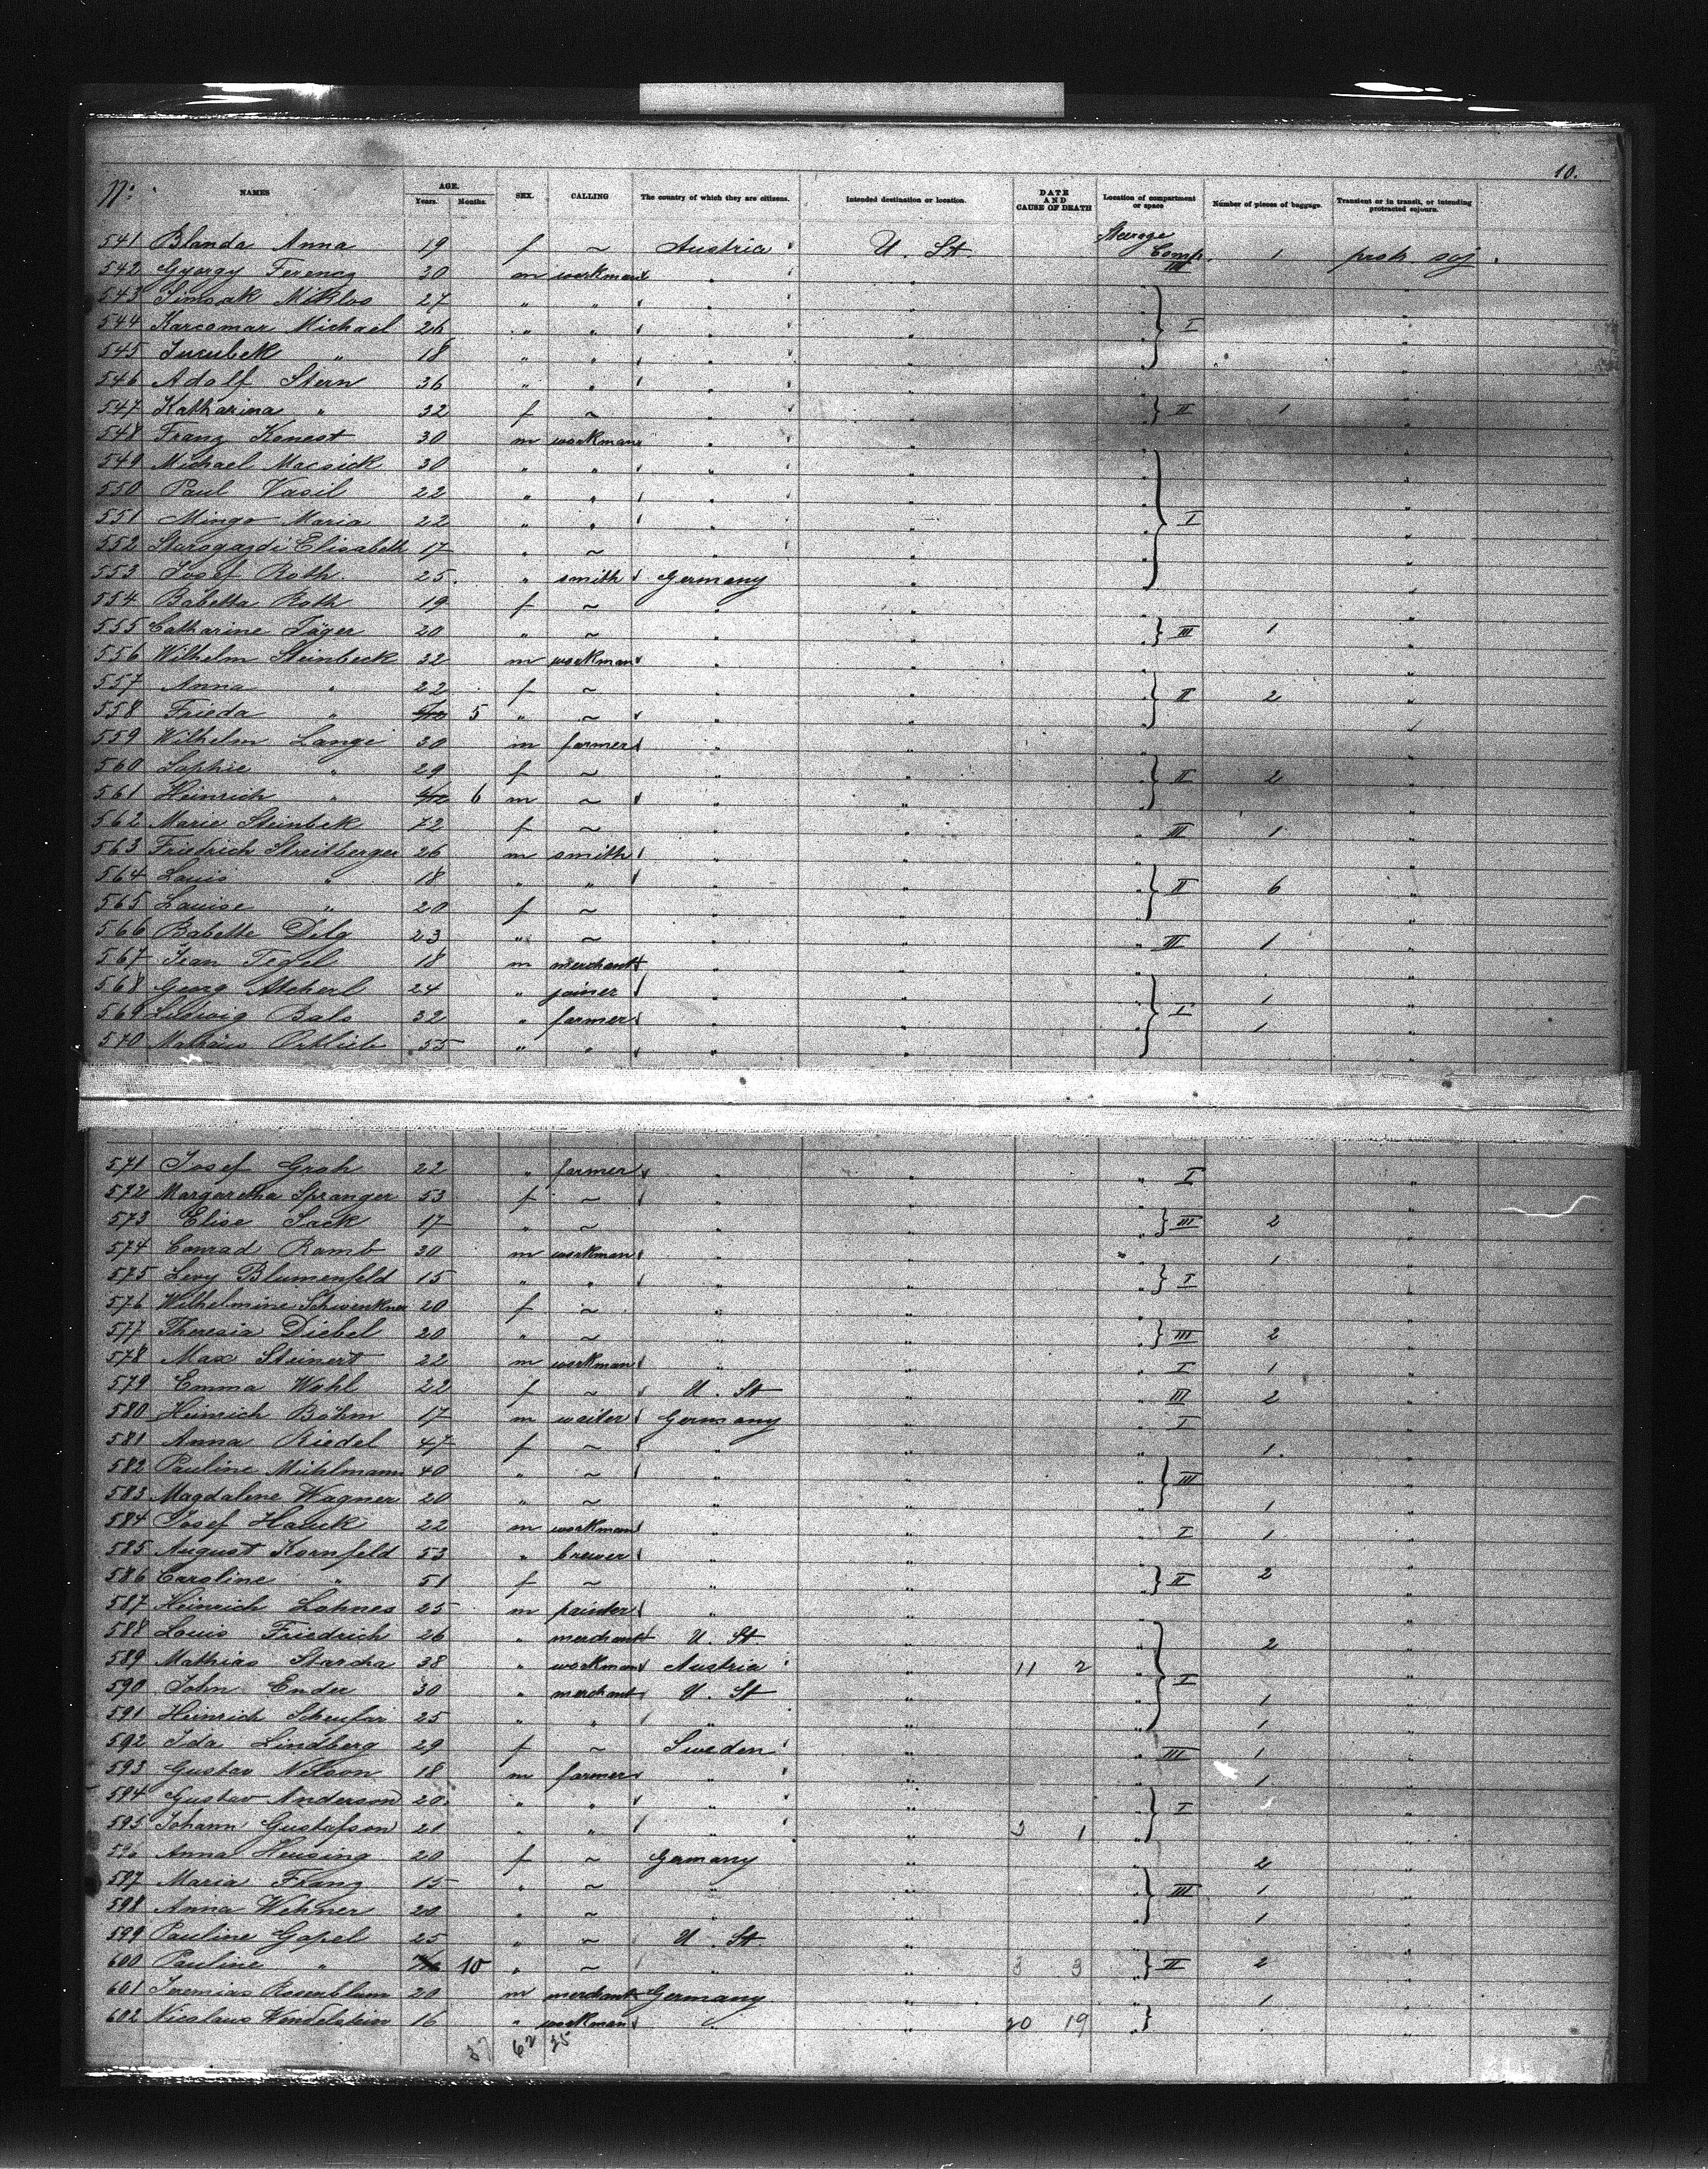 10.
No: NAMES AGE. Years. Months. SEX. CALLING The country of which they are citizens. Intended destination or location. DATE AND CAUSE OF DEATH Location of compartment or space Number of pieces of baggage. Transient or in transit, or intending protracted sojourn.
541 Blanda Anna 19 f ~ Austria U. St. Steerage Comp. III 1 protr. soj.
542 Gyorgy Ferencz 30 m workman " " "
543 Simsak Miklos 27 " " " " "
544 Karcomar Michael 26 " " " " I "
545 " 18 " " " " "
546 Adolf Stern 36 " " " " "
547 Katharina " 32 f ~ " " II 1 "
548 Franz Kenest 30 m workman " " "
549 Michael Macsick 30 " " " " "
550 Paul Vasil 22 " " " " "
551 Mingo Maria 22 " " " " I "
552 Starogazdi Elisabeth 17 " ~ " " "
553 Josef Roth 25 " smith Germany " "
554 Babetta Roth 19 f ~ " " "
555 Catharine Jäger 20 " ~ " " III 1 "
556 Wilhelm Steinbeck 32 m workman " " "
557 Anna " 22 f ~ " " II 2 "
558 Frieda " 5 " ~ " " "
559 Wilhelm Lange 30 m farmer " " "
560 Sophie " 29 f ~ " " II 2 "
561 Heinrich " 6 m ~ " " "
562 Marie Steinbek 72 f ~ " " III 1 "
563 Friedrich Streitberger 26 m smith " " "
564 Louis " 18 " " " " II 6 "
565 Louise " 20 f ~ " " "
566 Babette Delg 23 " ~ " " III 1 "
567 Jean Tegel 18 m merchant " " "
568 Georg 24 " joiner " " 1 "
569 Ludwig Bals 32 " farmer " " I 1 "
570 Mathäus Ortlieb 55 " " " " "
571 Josef Groh 22 " farmer " " I "
572 Margaretha Spranger 53 f ~ " " "
573 Elise Sack 17 " ~ " " III 2 "
574 Conrad Ramb 30 m workman " " 1 "
575 Levy Blumenfeld 15 " " " " I "
576 Wilhelmine Schwenkner 20 f ~ " " "
577 Theresia Diebel 20 " ~ " " III 2 "
578 Max Steinert 22 m workman " " I 1 "
579 Emma Wohl 22 f ~ U. St " III 2 "
580 Heinrich Böhm 17 m waiter Germany " I "
581 Anna Riedel 47 f ~ " " 1. "
582 Pauline Mühlmann 40 " ~ " " III "
583 Magdalene Wagner 20 " ~ " " 1 "
584 Josef Hauck 22 m workman " " I 1 "
585 August Kornfeld 53 " brewer " " "
586 Caroline " 51 f ~ " " II 2 "
587 Heinrich Lohnes 25 m painter " " "
588 Louis Friedrich 26 " merchant U. St. " 2 "
589 Mathias Starcha 38 " workman Austria " 11 2 "
590 John Ender 30 " merchant U. St " I 1 "
591 Heinrich 25 " " " " 1 "
592 Ida Lindberg 29 f ~ Sweden " III 1 "
593 Gustav Nelson 18 m farmer " " 1 "
594 Gustav Anderson 20 " " " " I "
595 Johann Gustafson 21 " " " " 3 1 "
596 Anna Heusing 20 f ~ Germany " 2 "
597 Maria Franz 15 " ~ " " III 1 "
598 Anna Wehner 20 " ~ " " 1 "
599 Pauline Gapel 25 " ~ U. St. " "
600 Pauline " 10 " ~ " " 3 3 II 2 "
601 Jeremias Rosenblum 20 m merchant Germany " 1 "
602 Nicolaus Wendelstein 16 " workman " " 20 19 "
37 62 25